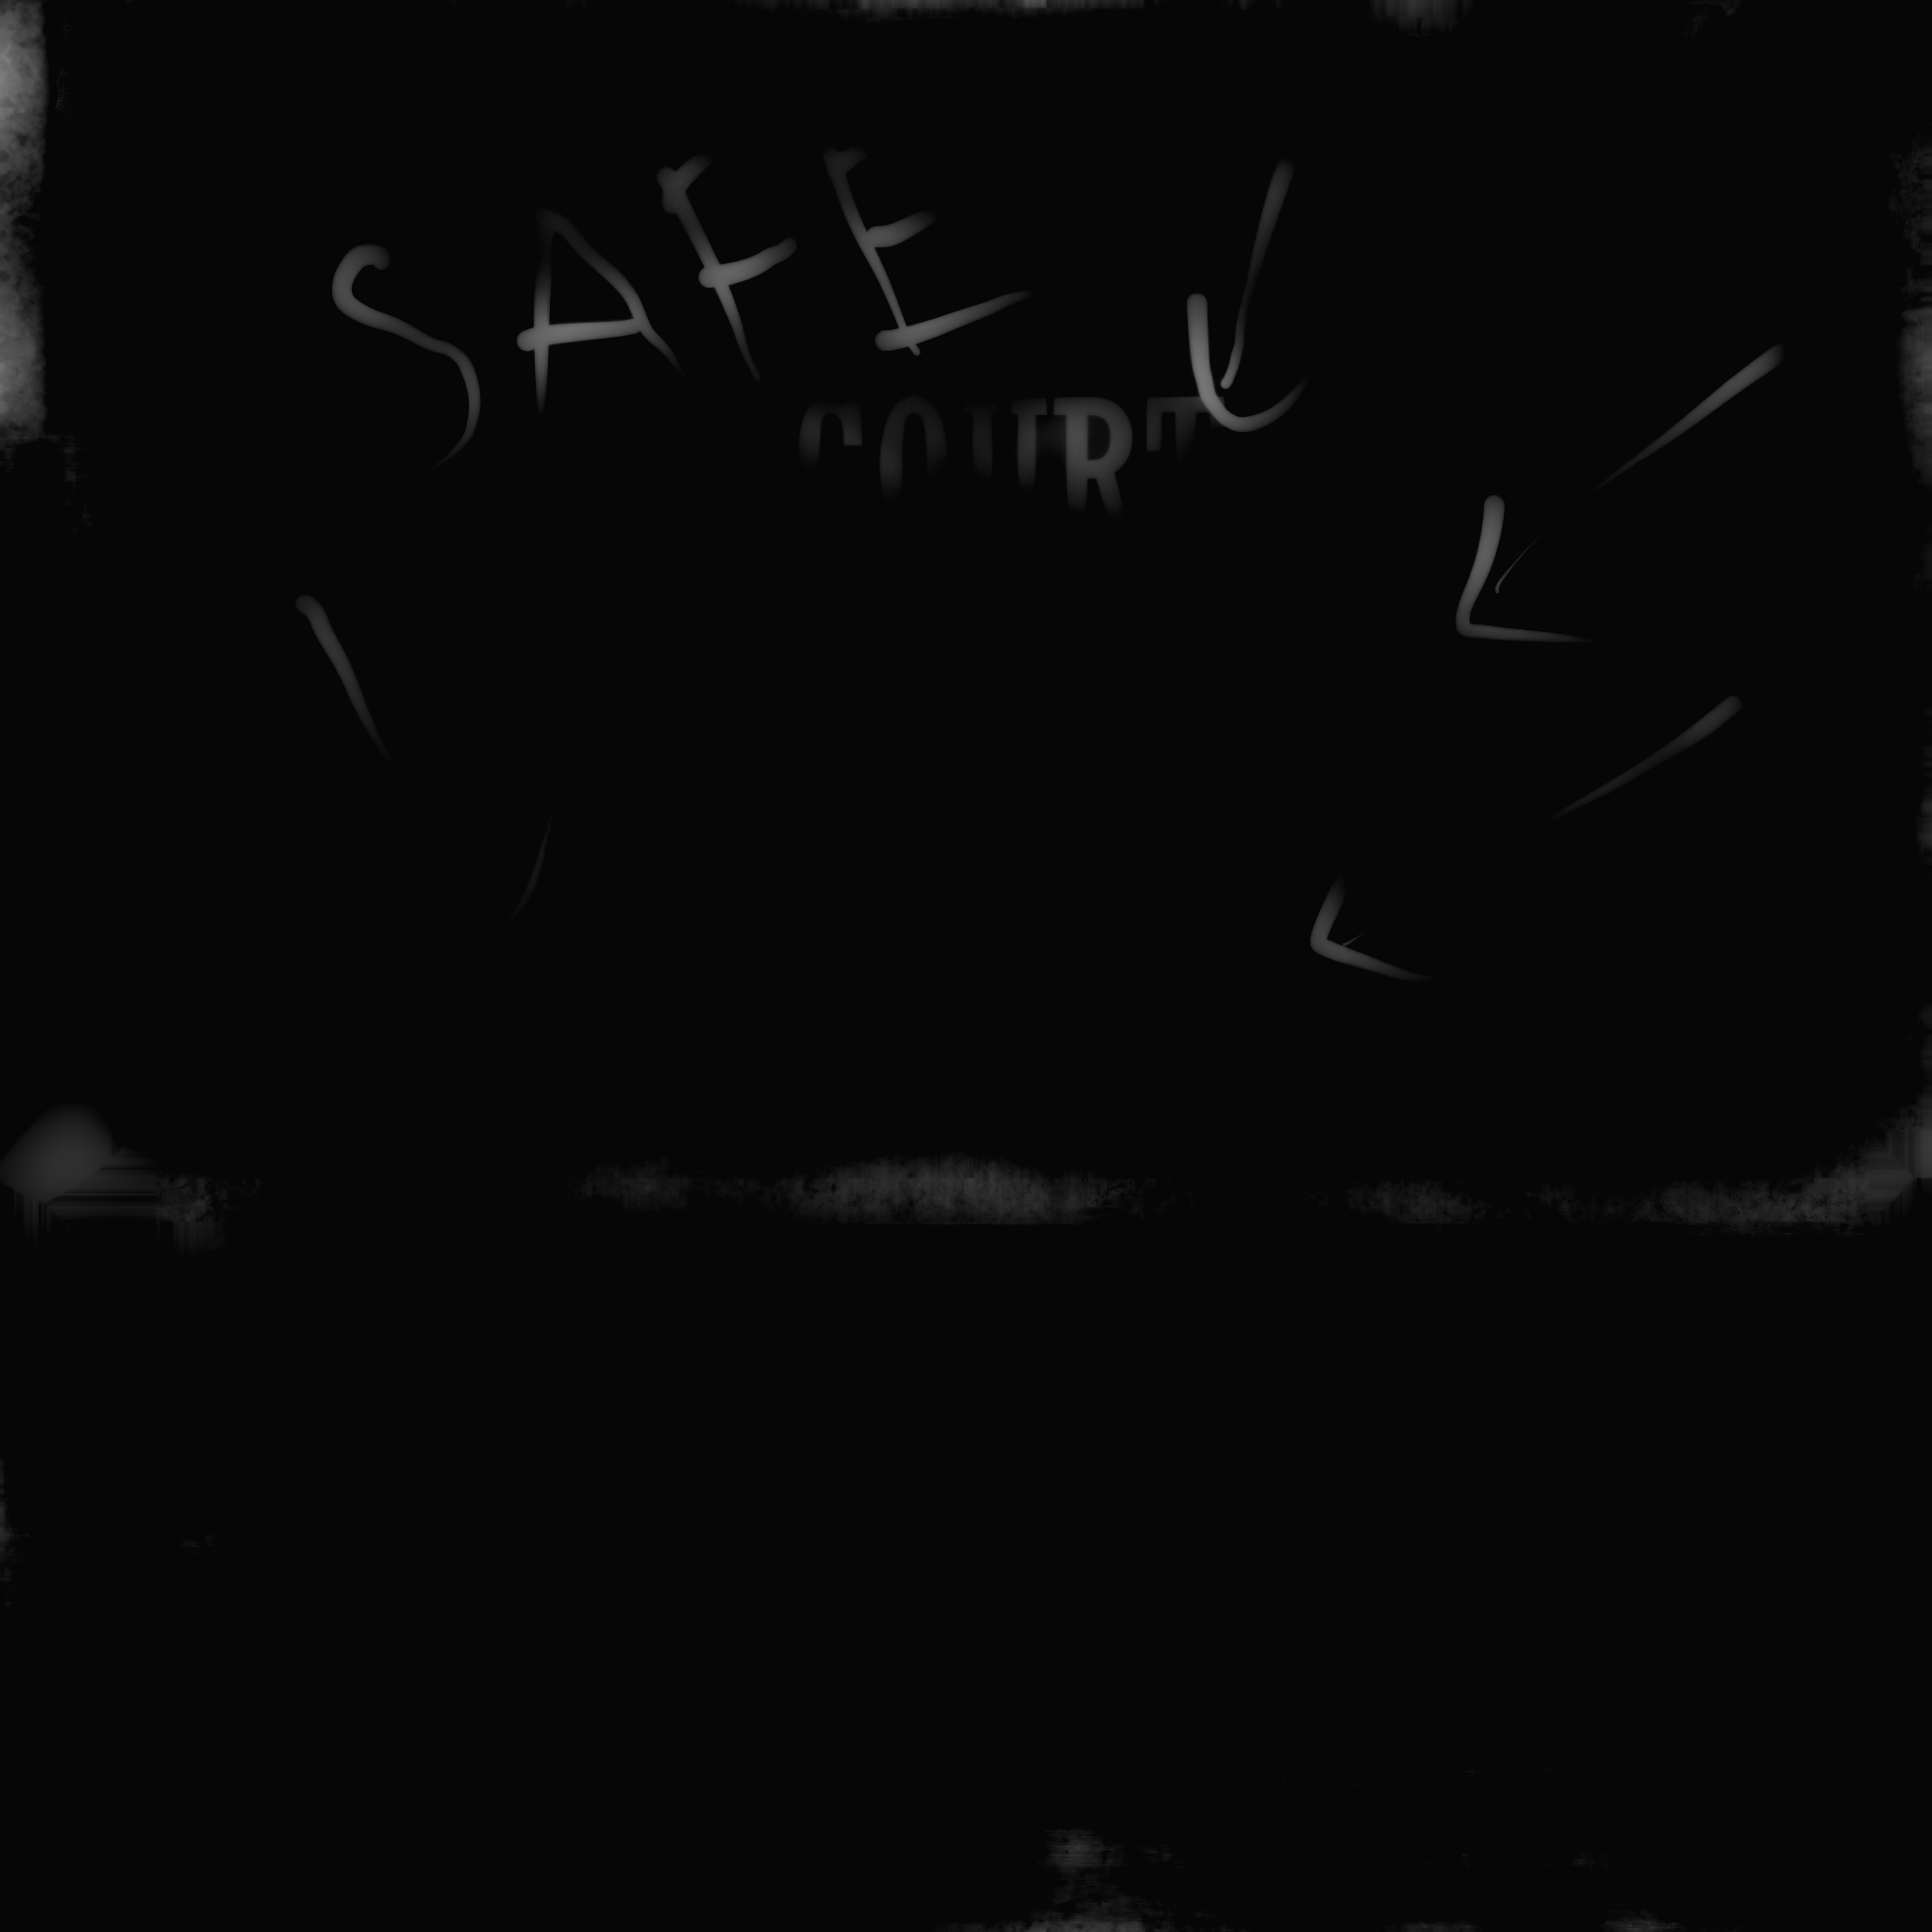 SAFE
COURT